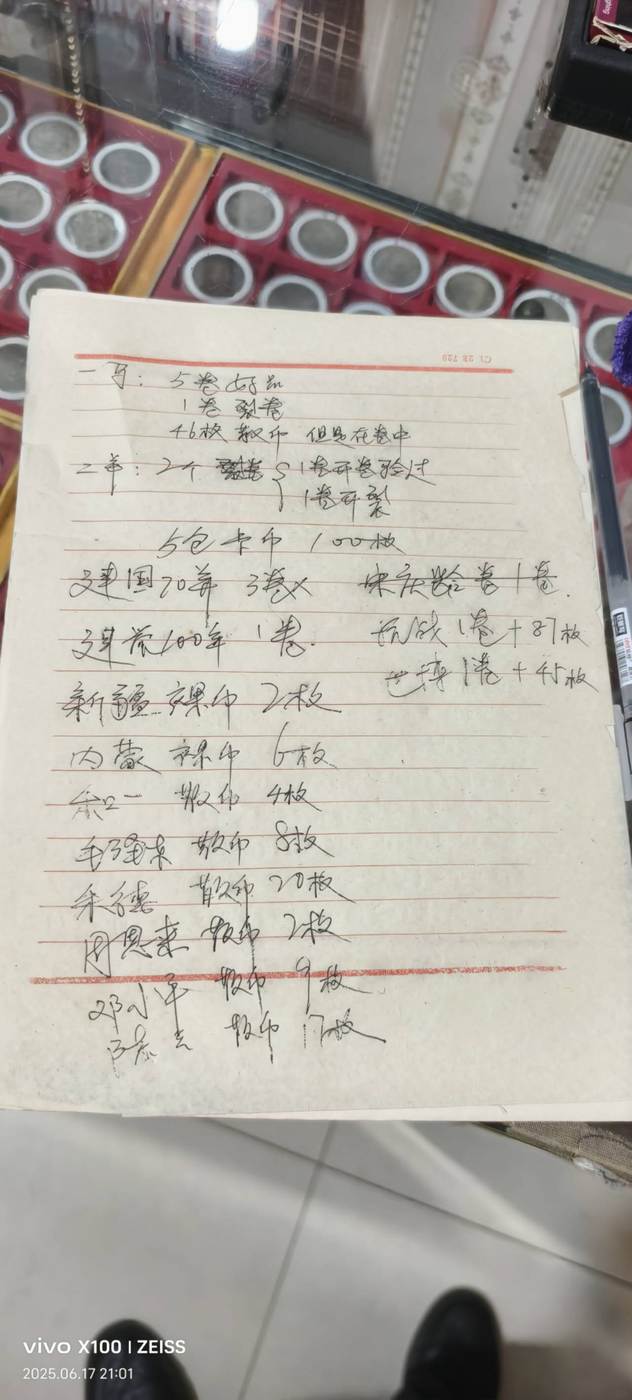 一马：5卷好品
1卷 裂卷
46枚 散币 但是在卷中
二羊：2个 裂卷 1卷开卷验过
1卷开裂
5包卡币 100枚
建国70年 3卷 宋庆龄卷1卷.
建党100年 1卷. 抗战1卷+87枚
1卷+45枚
新疆 裸币 2枚
内蒙 裸币 6枚
和一 散币 4枚
毛泽东 散币 8枚
朱德 散币 20枚
周恩来 散币 2枚
邓小平 散币 9枚
陈云 散币 17枚
vivo X100 | ZEISS
2025.06.17 21:01